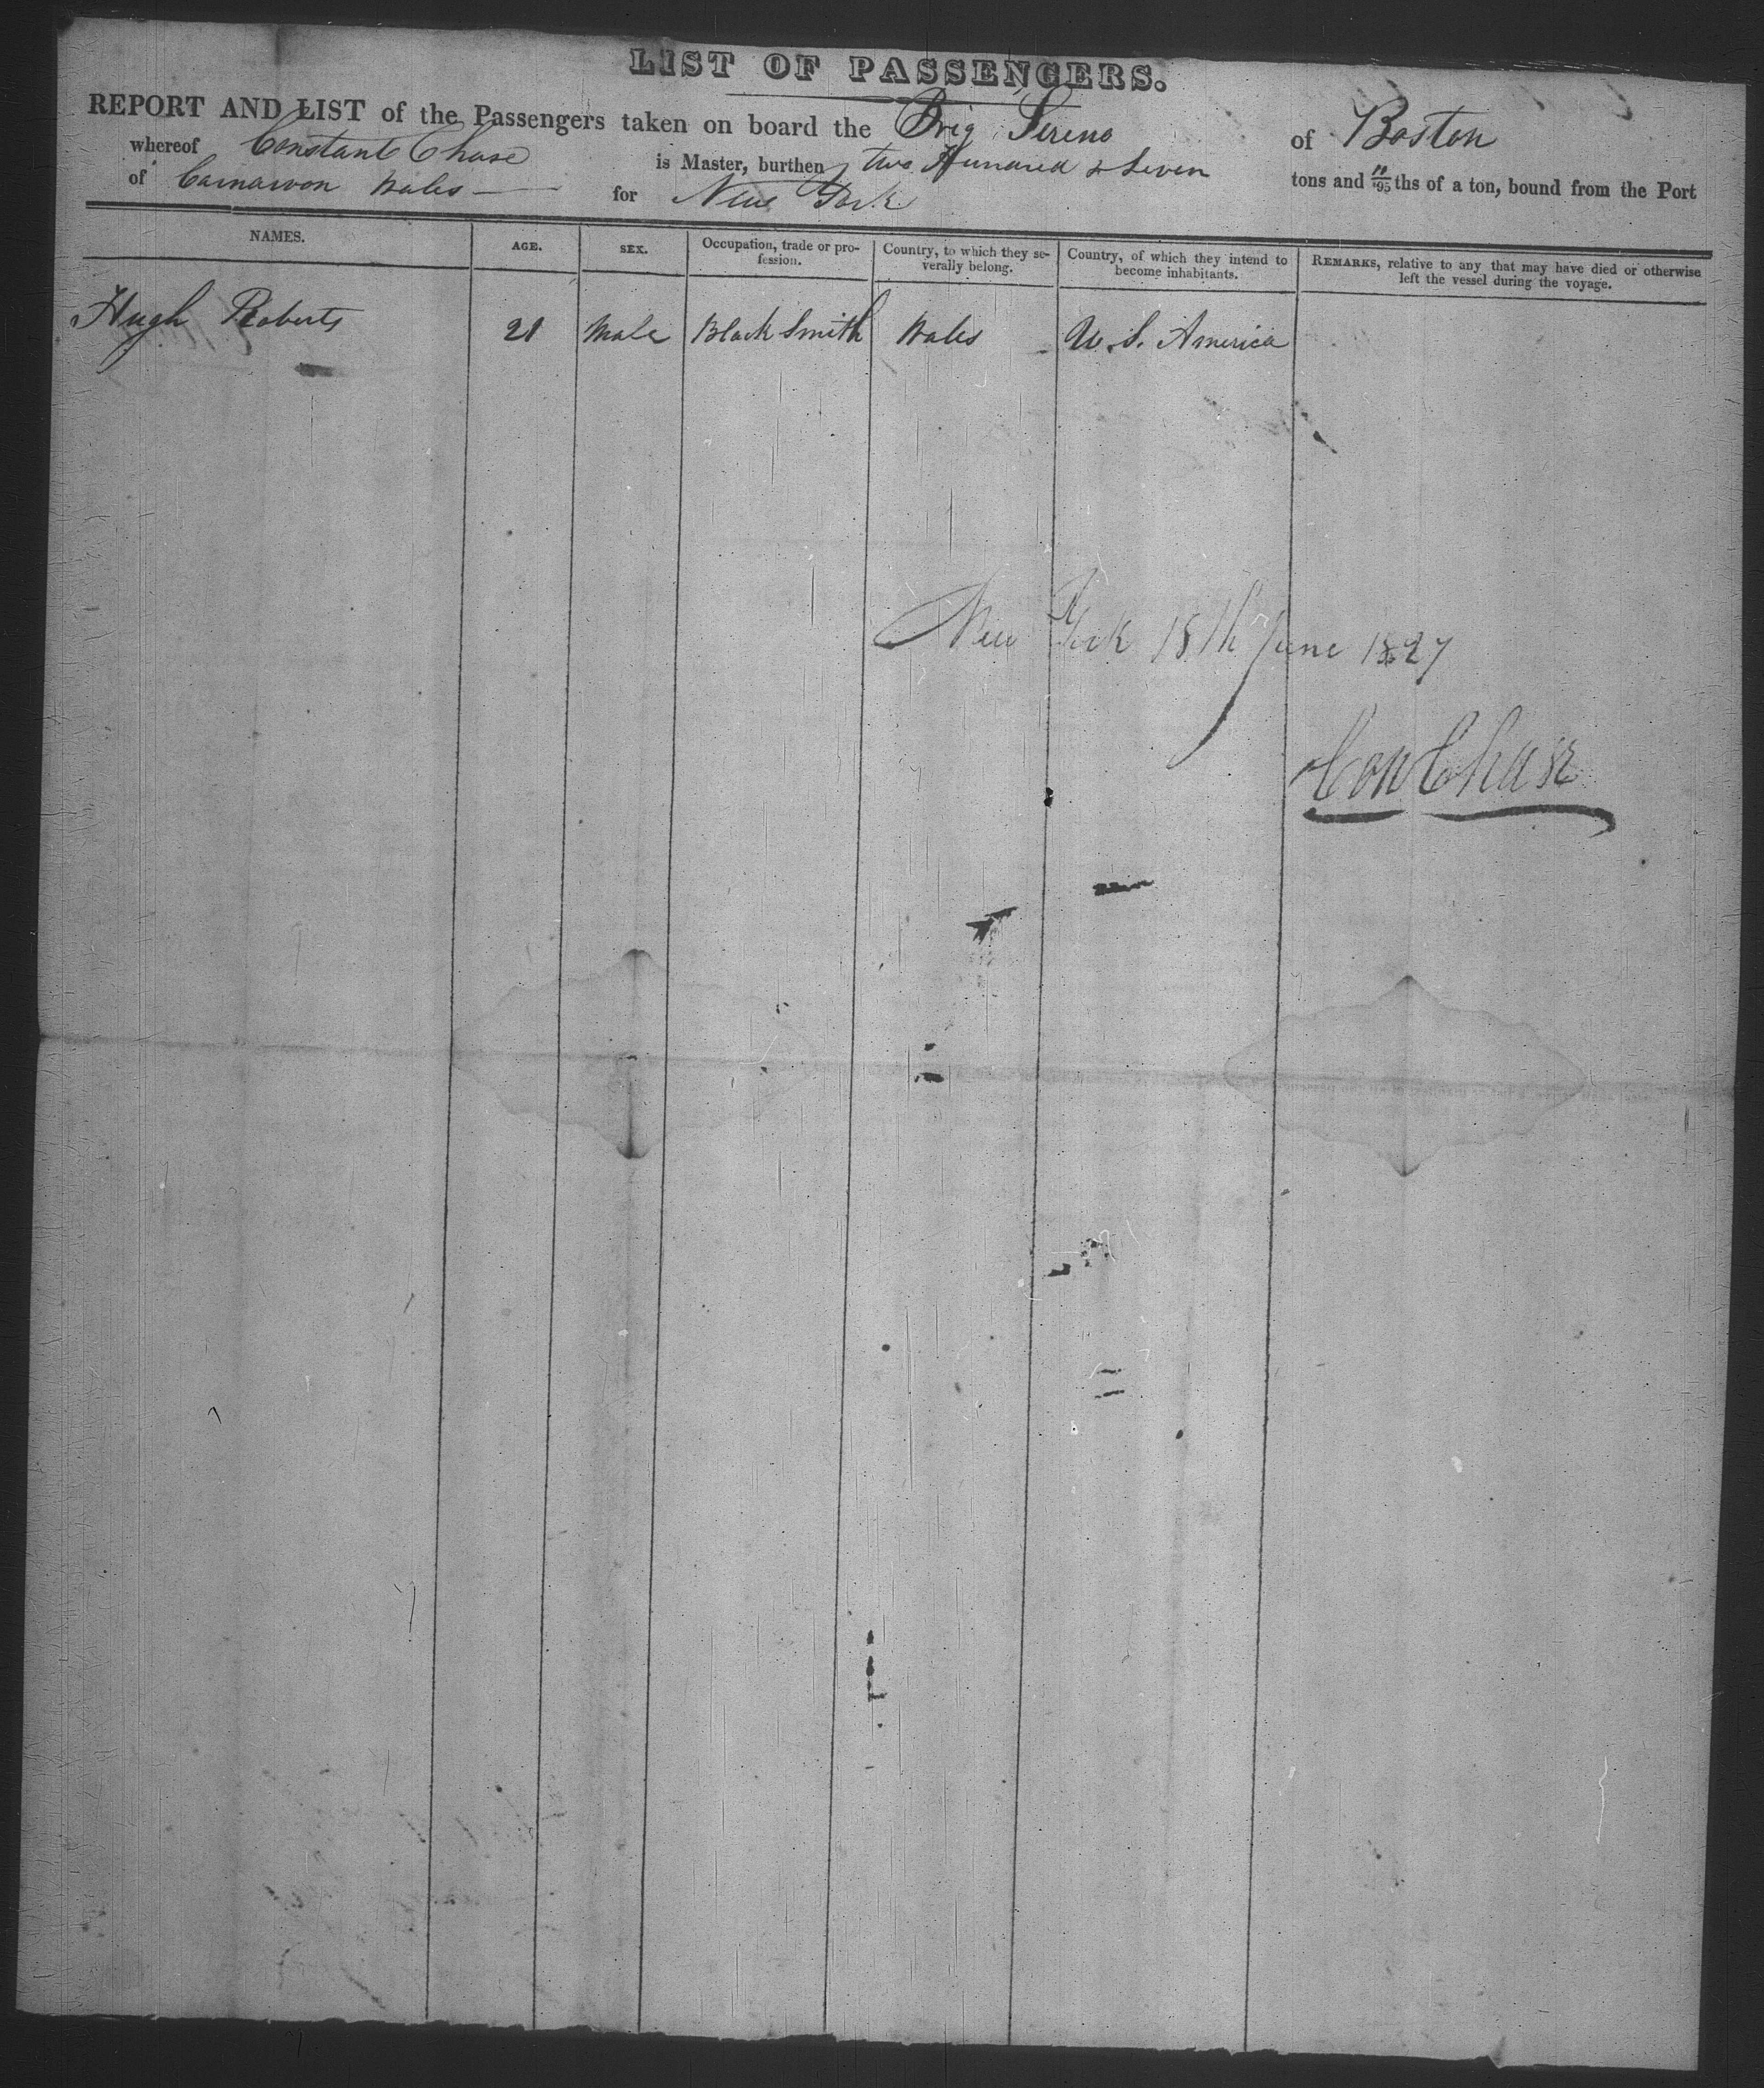 LIST OF PASSENGERS.
REPORT AND LIST of the Passengers taken on board the Brig Sereno of Boston
whereof Constant Chase is Master, burthen two Hundred & Seven tons and 11/95 ths of a ton, bound from the Port
of Carnarvon Wales for New York
NAMES. AGE. SEX. Occupation, trade or pro-fession. Country, to which they se-verally belong. Country, of which they intend to become inhabitants. REMARKS, relative to any that may have died or otherwise left the vessel during the voyage.
Hugh Roberts 21 Male Black Smith Wales U. S. America
New York 18th June 1827
Con Chase